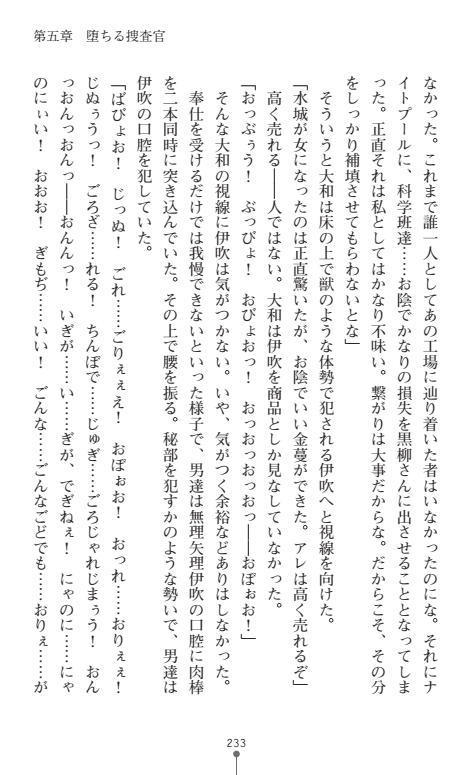 第五章　堕ちる捜査官
なかった。これまで誰一人としてあの工場に辿り着いた者はいなかったのにな。それにナ
イトプールに、科学班達……お陰でかなりの損失を黒柳さんに出させることとなってしま
った。正直それは私としてはかなり不味い。繋がりは大事だからな。だからこそ、その分
をしっかり補填させてもらわないとな」
　そういうと大和は床の上で獣のような体勢で犯される伊吹へと視線を向けた。
「水城が女になったのは正直驚いたが、お陰でいい金蔓ができた。アレは高く売れるぞ」
　高く売れる――人ではない。大和は伊吹を商品としか見なしていなかった。
「おっぶぅう！　ぶっぴょ！　おぴょおっ！　おっおっおっおっ――おぽぉお！」
　そんな大和の視線に伊吹は気がつかない。いや、気がつく余裕などありはしなかった。
　奉仕を受けるだけでは我慢できないといった様子で、男達は無理矢理伊吹の口腔に肉棒
を二本同時に突き込んでいた。その上で腰を振る。秘部を犯すかのような勢いで、男達は
伊吹の口腔を犯していた。
「ばぴょお！　じっぬ！　ごれ……ごりぇぇえ！　おぽぉお！　おっれ……おりぇぇ！
じぬぅうっ！　ごろざ……れる！　ちんぽで……じゅぎ……ごろじゃれじまぅう！　おん
っおんっおんっ――おんんっ！　いぎが……い……ぎが、でぎねぇ！　にゃのに……にゃ
のにぃい！　おおお！　ぎもぢ……いい！　ごんな……ごんなごどでも……おりぇ……が
233